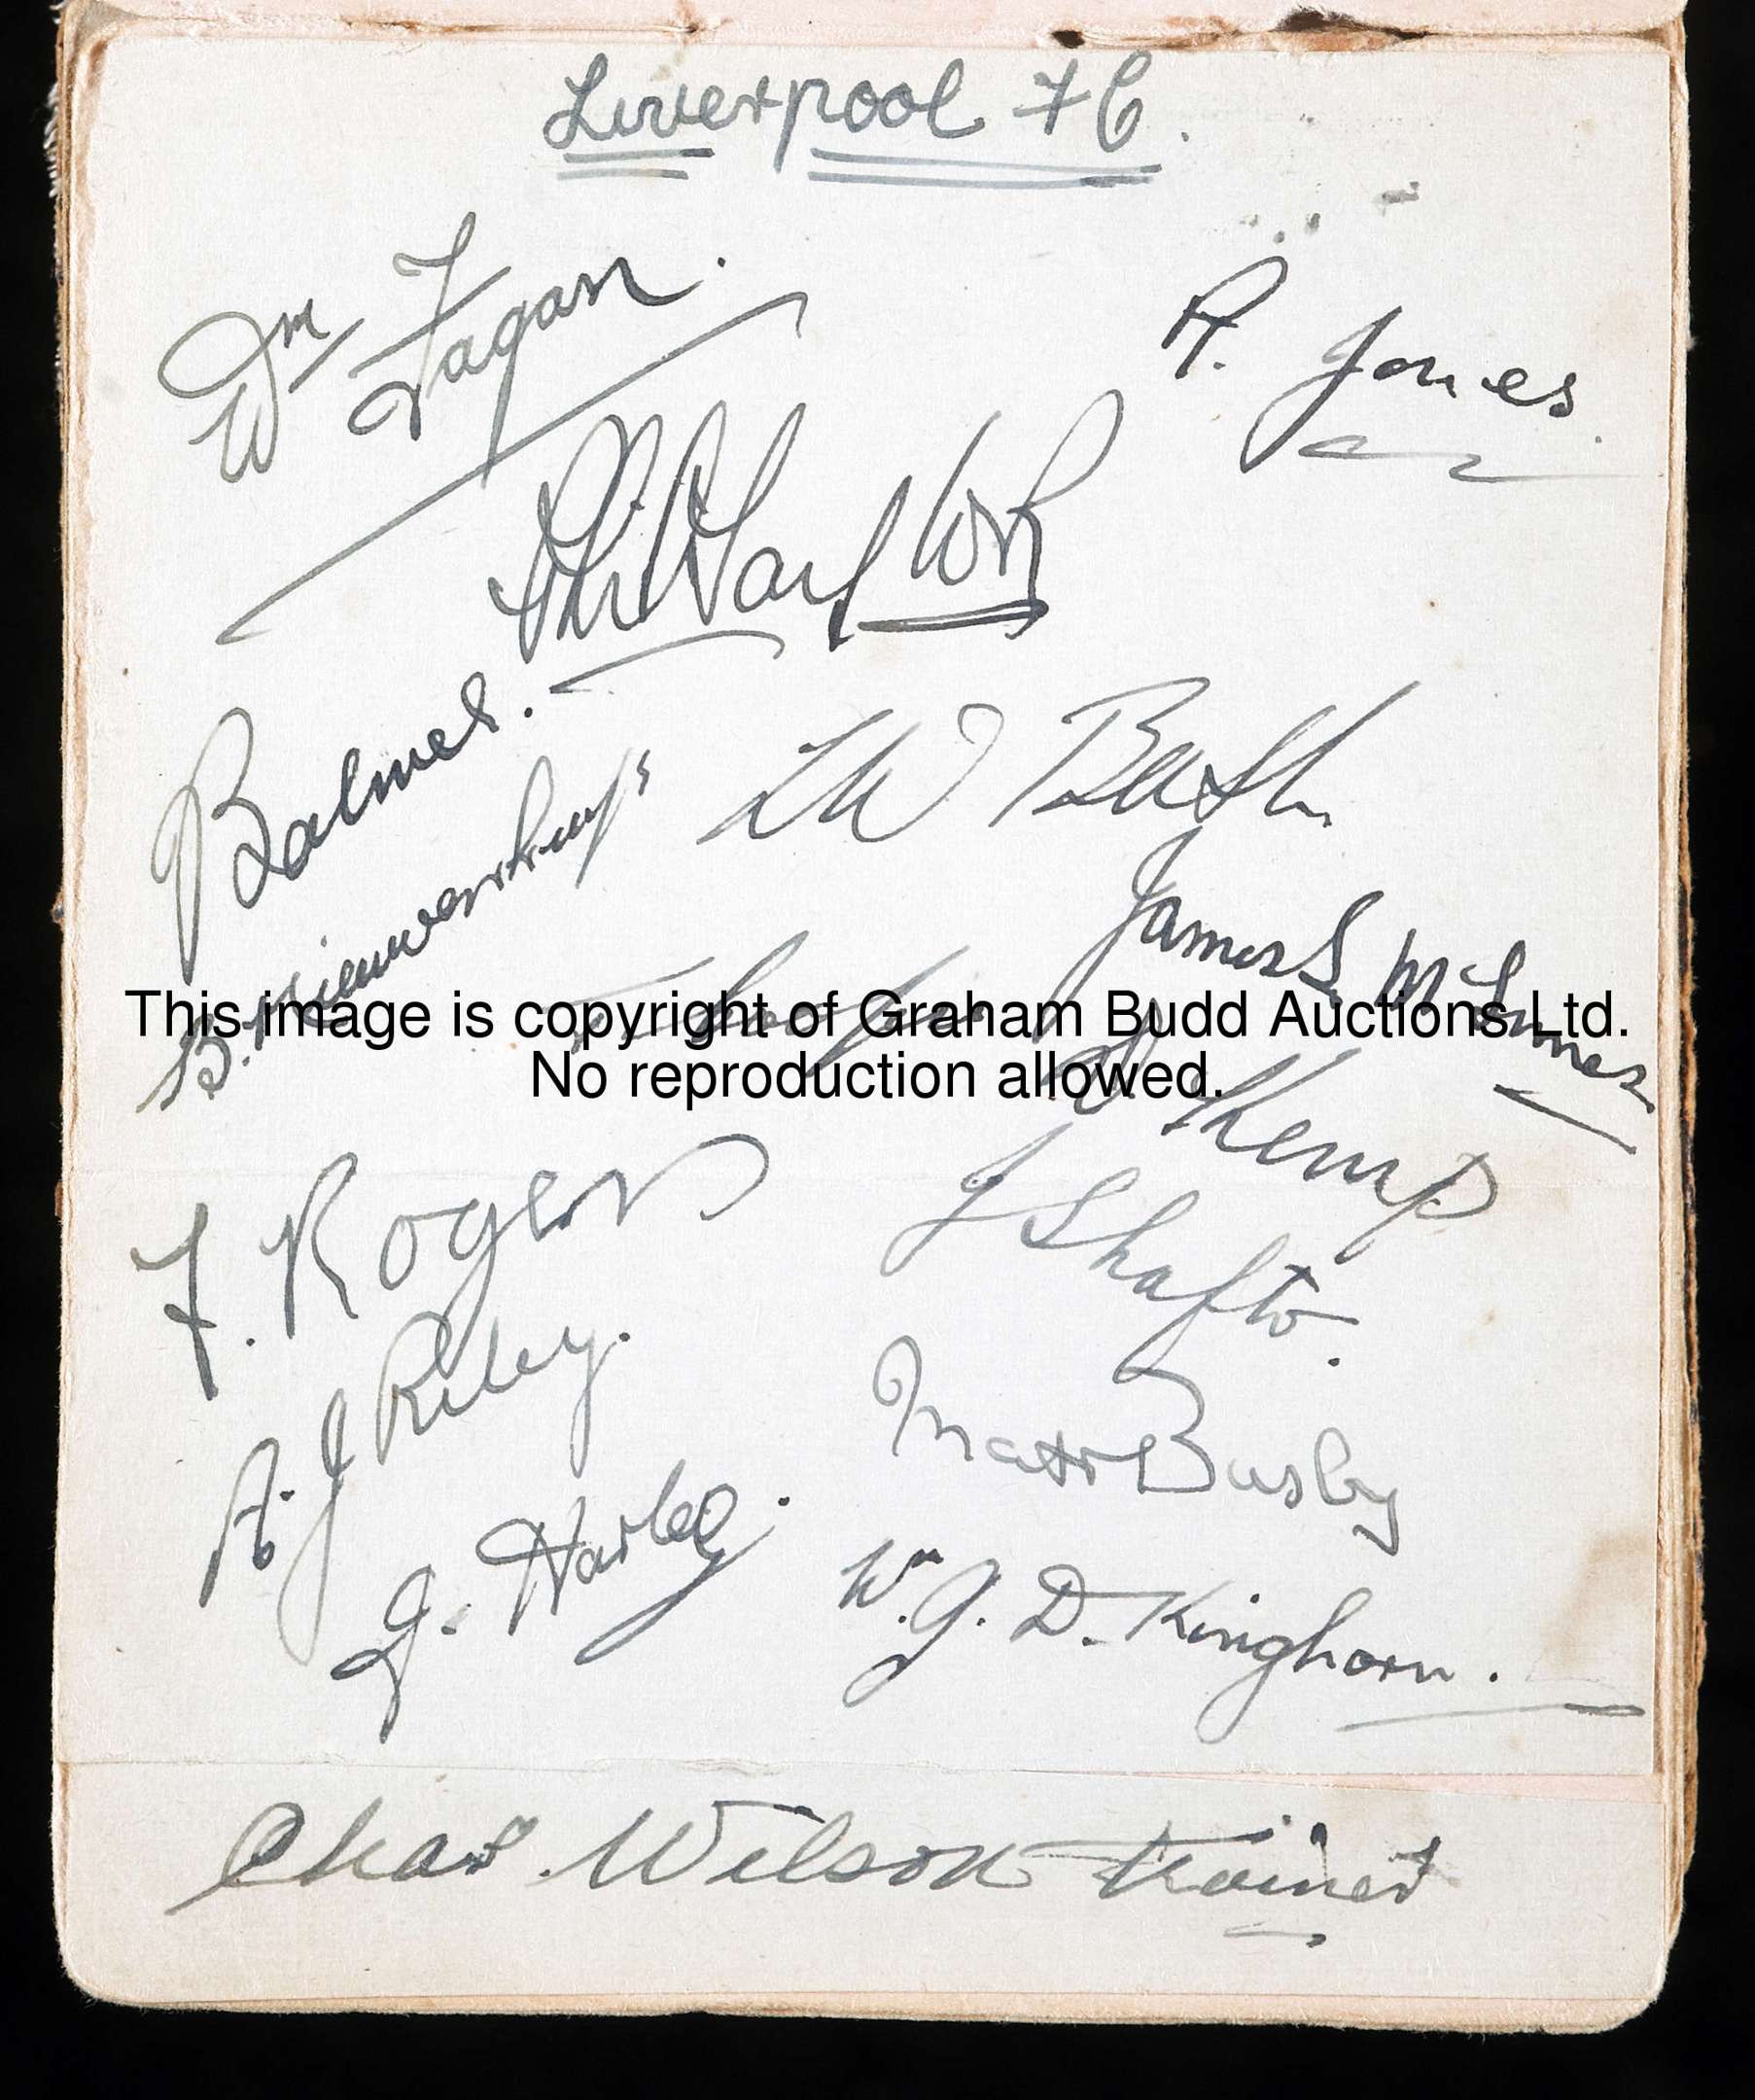 Liverpool FC.
Wm Fagan.
R. Jones.
Balmer.
B. Nieuwenhuys
James S McInnes
This image is copyright of Graham Budd Auctions Ltd.
No reproduction allowed.
D Kemp
F. Rogers
J Shafto.
A. J Riley.
Matt Busby
J. Harley.
Wm. G. D. Kinghorn.
Chas Wilson Trainer